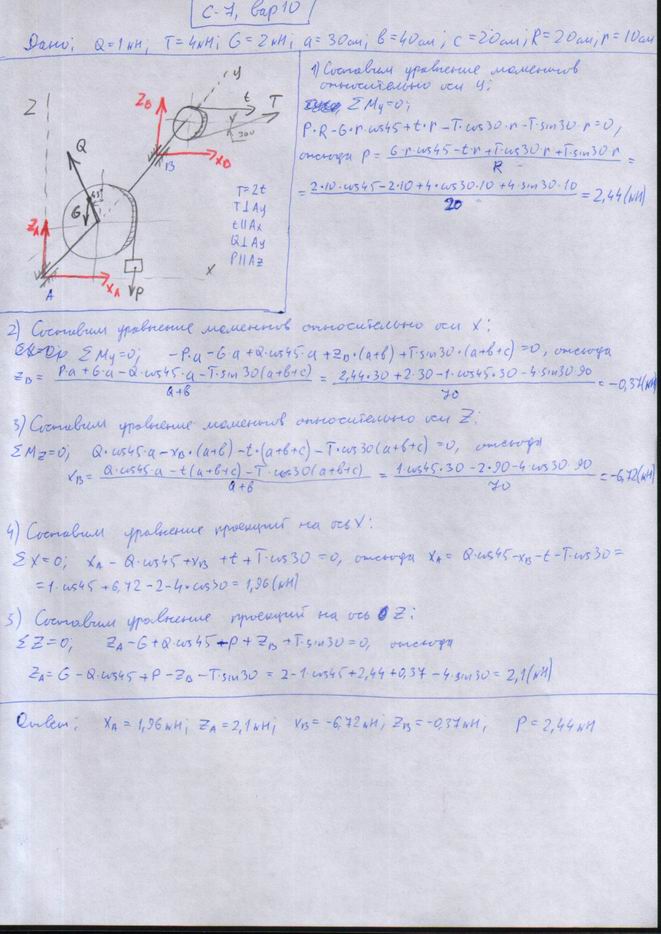 С-7, вар 10
Дано: Q=1кН; T=4кН; G=2кН; a=30см; b=40см; c=20см; R=20см; r=10см
1) Составим уравнение моментов
относительно оси y:
ΣMy=0;
P·R-G·r·cos45+t·r-T·cos30·r-T·sin30·r=0,
отсюда P = (G·r·cos45-t·r+T·cos30·r+T·sin30·r)/R =
= (2·10·cos45-2·10+4·cos30·10+4·sin30·10)/20 = 2,44(кН)
Z
y
ZB
t
T
30
B
xB
Q
45
G
ZA
A
xA
P
x
T=2t
T⊥Ay
t∥Ax
Q⊥Ay
P∥Az
2) Составим уравнение моментов относительно оси X:
ΣMy=0; -P·a-G·a+Q·cos45·a+zB·(a+b)+T·sin30·(a+b+c)=0, отсюда
zB = (P·a+G·a-Q·cos45·a-T·sin30(a+b+c))/(a+b) = (2,44·30+2·30-1·cos45·30-4·sin30·90)/70 = -0,37(кН)
3) Составим уравнение моментов относительно оси Z:
ΣMz=0; Q·cos45·a-xB·(a+b)-t·(a+b+c)-T·cos30(a+b+c)=0, отсюда
xB = (Q·cos45·a-t(a+b+c)-T·cos30(a+b+c))/(a+b) = (1·cos45·30-2·90-4·cos30·90)/70 = -6,72(кН)
4) Составим уравнение проекций на ось X:
ΣX=0; xA-Q·cos45+xB+t+T·cos30=0, отсюда xA=Q·cos45-xB-t-T·cos30=
=1·cos45+6,72-2-4·cos30=1,96(кН)
5) Составим уравнение проекций на ось Z:
ΣZ=0; zA-G+Q·cos45-P+zB+T·sin30=0, отсюда
zA=G-Q·cos45+P-zB-T·sin30=2-1·cos45+2,44+0,37-4·sin30=2,1(кН)
Ответ: xA=1,96кН; zA=2,1кН; xB=-6,72кН; zB=-0,37кН, P=2,44кН